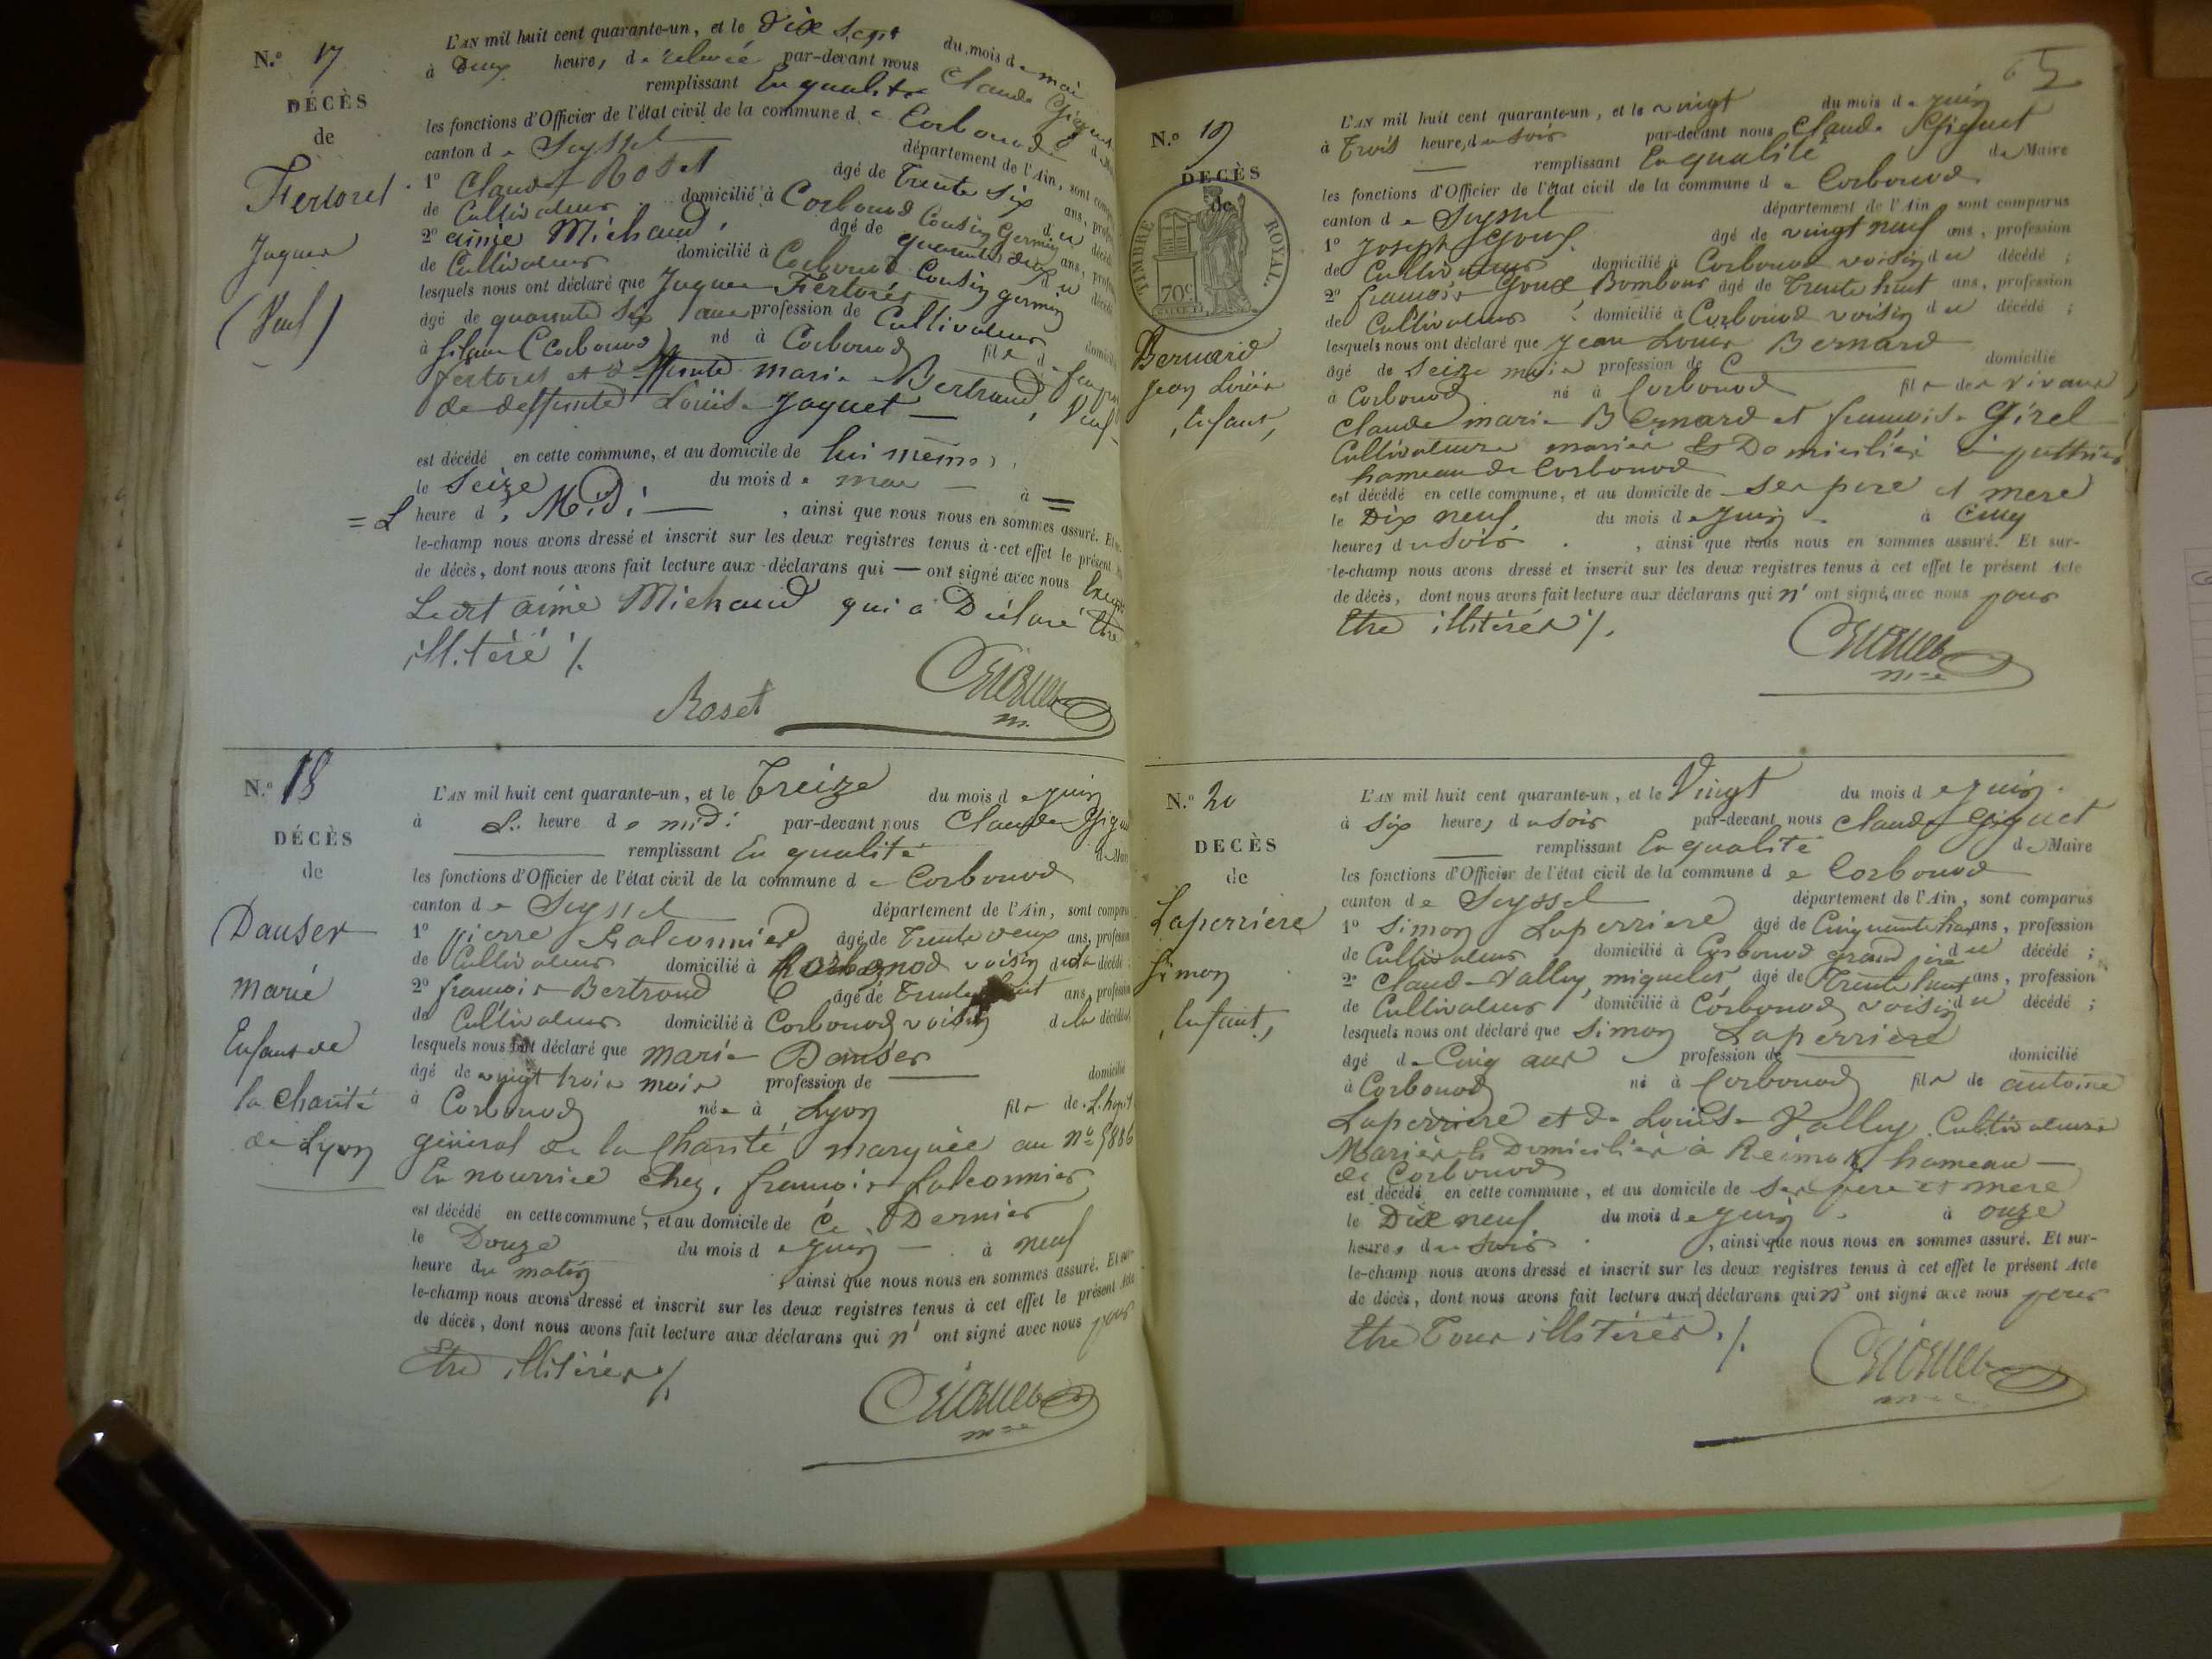 N.° 17
DÉCÈS
de
Fertoret
Jaques
(Veuf)
L'AN mil huit cent quarante-un, et le Dix Sept du mois de mai
à Deux heures de relevée par-devant nous Claude Giguet
remplissant En qualité de
les fonctions d'Officier de l'état civil de la commune de Corbonod
canton de Seyssel département de l'Ain, sont
1° Claude Roset âgé de Trente Six ans,
de Cultivateur domicilié à Corbonod Cousin germain du
2° aimé Michaud, âgé de quarante deux ans,
de Cultivateur domicilié à Corbonod Cousin germain du
lesquels nous ont déclaré que Jaques Fertoret
âgé de quarante Six ans profession de Cultivateur
à (Corbonod) né à Corbonod fils de feu
fertoret et de deffunte marie Bertrand, Veuf
de deffunte Louise Jaquet
est décédé en cette commune, et au domicile de lui même,
le Seize du mois de mai à =
= L heure de Midi , ainsi que nous nous en sommes assuré. Et
le-champ nous avons dressé et inscrit sur les deux registres tenus à cet effet le présent
de décès, dont nous avons fait lecture aux déclarans qui ont signé avec nous
Ledit aimé Michaud qui a Déclaré être
illitéré /.
Roset
Giguet
m.
N.° 18
DÉCÈS
de
Danser
marie
Enfant de
la charité
de Lyon
L'AN mil huit cent quarante-un, et le Treize du mois de juin
à L: heure de midi par-devant nous Claude Giguet
remplissant En qualité de Maire
les fonctions d'Officier de l'état civil de la commune de Corbonod
canton de Seyssel département de l'Ain, sont comparus
1° pierre Falconnier âgé de Trente deux ans, profession
de Cultivateur domicilié à Corbonod voisin de la décédé
2° francois Bertrand âgé de Trente huit ans, profession
de Cultivateur domicilié à Corbonod voisin de la décédé
lesquels nous ont déclaré que marie Danser
âgé de vingt trois mois profession de domicilié
à Corbonod née à Lyon fille de L'hopital
général de la Charité marquée au N° 5886
En nourrice chez francois falconnier
est décédé en cette commune, et au domicile de Ce Dernier
le Douze du mois de juin à neuf
heure du matin ainsi que nous nous en sommes assuré. Et sur-
le-champ nous avons dressé et inscrit sur les deux registres tenus à cet effet le présent Acte
de décès, dont nous avons fait lecture aux déclarans qui n' ont signé avec nous pour
Etre illitérés /.
Giguet
mre
N.° 19
DÉCÈS
de
TIMBRE ROYAL.
70c
Bernard
Jean Louis
, Enfant,
L'AN mil huit cent quarante-un, et le vingt du mois de juin
à Trois heures du soir par-devant nous Claude Giguet
remplissant En qualité de Maire
les fonctions d'Officier de l'état civil de la commune de Corbonod
canton de Seyssel département de l'Ain sont comparus
1° Joseph Goux âgé de vingt neuf ans, profession
de Cultivateur domicilié à Corbonod voisin du décédé ;
2° francois Goux Bombour âgé de Trente huit ans, profession
de Cultivateur domicilié à Corbonod voisin du décédé ;
lesquels nous ont déclaré que Jean Louis Bernard
âgé de Seize mois profession de domicilié
à Corbonod né à Corbonod fils des vivans
Claude marie Bernard et francoise Girel
Cultivateurs mariés & Domiciliés à
hameau de Corbonod
est décédé en cette commune, et au domicile de ses pere et mere
le Dix neuf du mois de juin à Cinq
heures du soir , ainsi que nous nous en sommes assuré. Et sur-
le-champ nous avons dressé et inscrit sur les deux registres tenus à cet effet le présent Acte
de décès, dont nous avons fait lecture aux déclarans qui n' ont signé avec nous pour
Etre illitérés /.
Giguet
mre
N.° 20
DECÈS
de
Laperriere
Simon
, Enfant,
L'AN mil huit cent quarante-un, et le Vingt du mois de juin
à Six heures du soir par-devant nous Claude Giguet
remplissant En qualité de Maire
les fonctions d'Officier de l'état civil de la commune de Corbonod
canton de Seyssel département de l'Ain, sont comparus
1° Simon Laperriere âgé de Cinquante huit ans, profession
de Cultivateur domicilié à Corbonod grand père du décédé ;
2° Claude Valley, miquelet, âgé de Trente huit ans, profession
de Cultivateur domicilié à Corbonod voisin du décédé ;
lesquels nous ont déclaré que Simon Laperriere
âgé de Cinq ans profession de domicilié
à Corbonod né à Corbonod fils de antoine
Laperriere et de Louise Valley Cultivateurs
Mariés & Domiciliés à Reimon hameau
de Corbonod
est décédé en cette commune, et au domicile de ses pere et mere
le Dix neuf du mois de juin à onze
heures du soir , ainsi que nous nous en sommes assuré. Et sur-
le-champ nous avons dressé et inscrit sur les deux registres tenus à cet effet le présent Acte
de décès, dont nous avons fait lecture aux déclarans qui n' ont signé avec nous pour
Etre Tous illitérés. /.
Giguet
mre